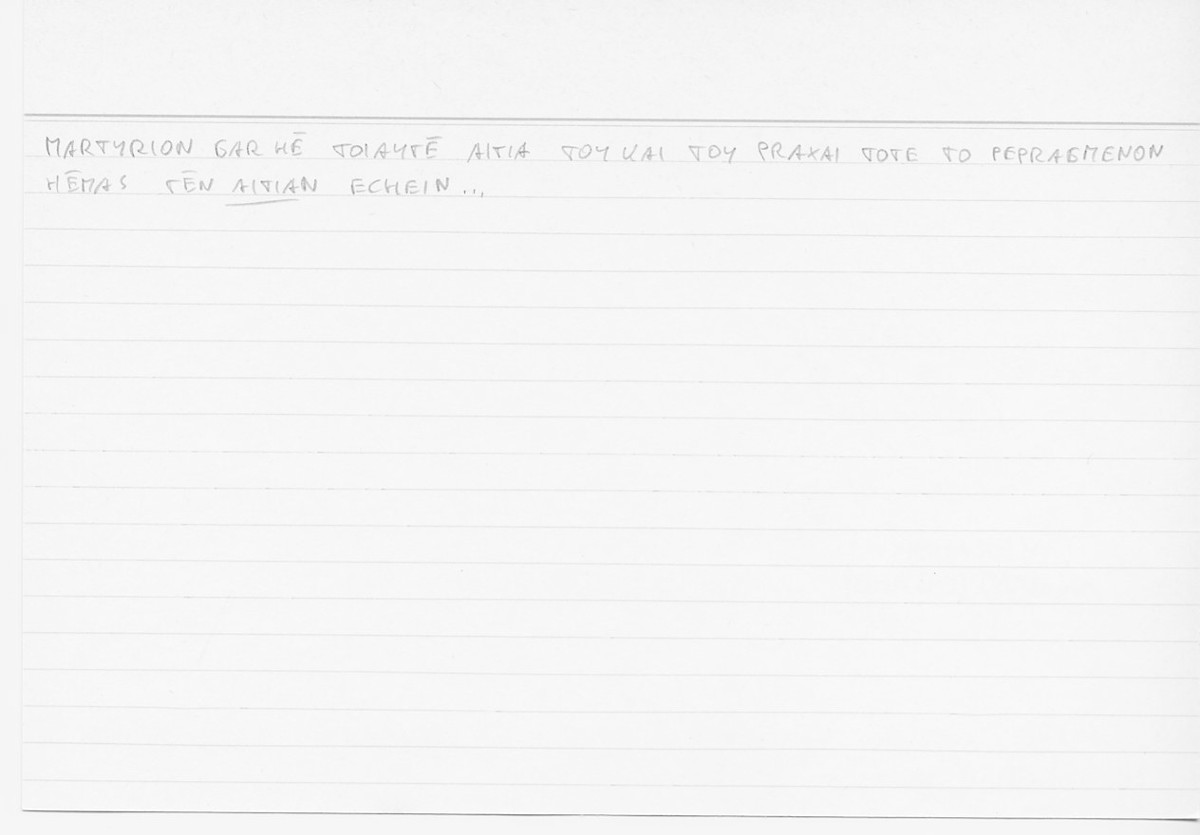 MARTYRION GAR HĒ TOIAUTĒ AITIA TOU KAI TOU PRAXAI TOTE TO PEPRAGMENON
HĒMAS TĒN AITIAN ECHEIN...